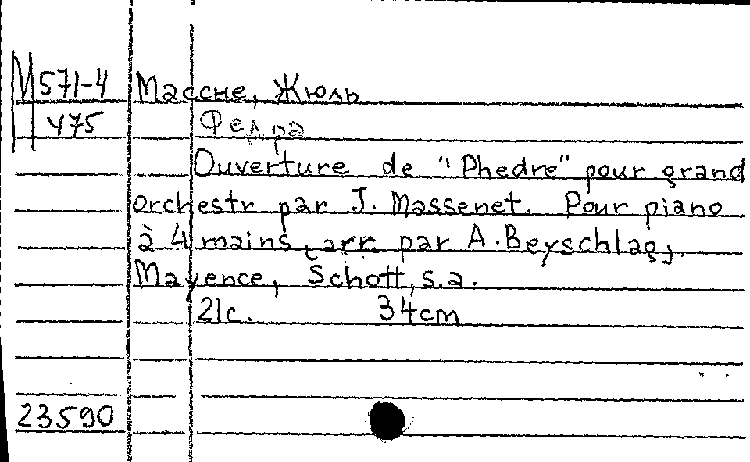 М571-4 Массне, Жюль
475 Федра
Ouverture de "Phedre" pour grand
orchestr par J. Massenet. Pour piano
à 4 mains, arr. par A. Beyschlag,
Mayence, Schott, s.a.
21c. 34cm
23590